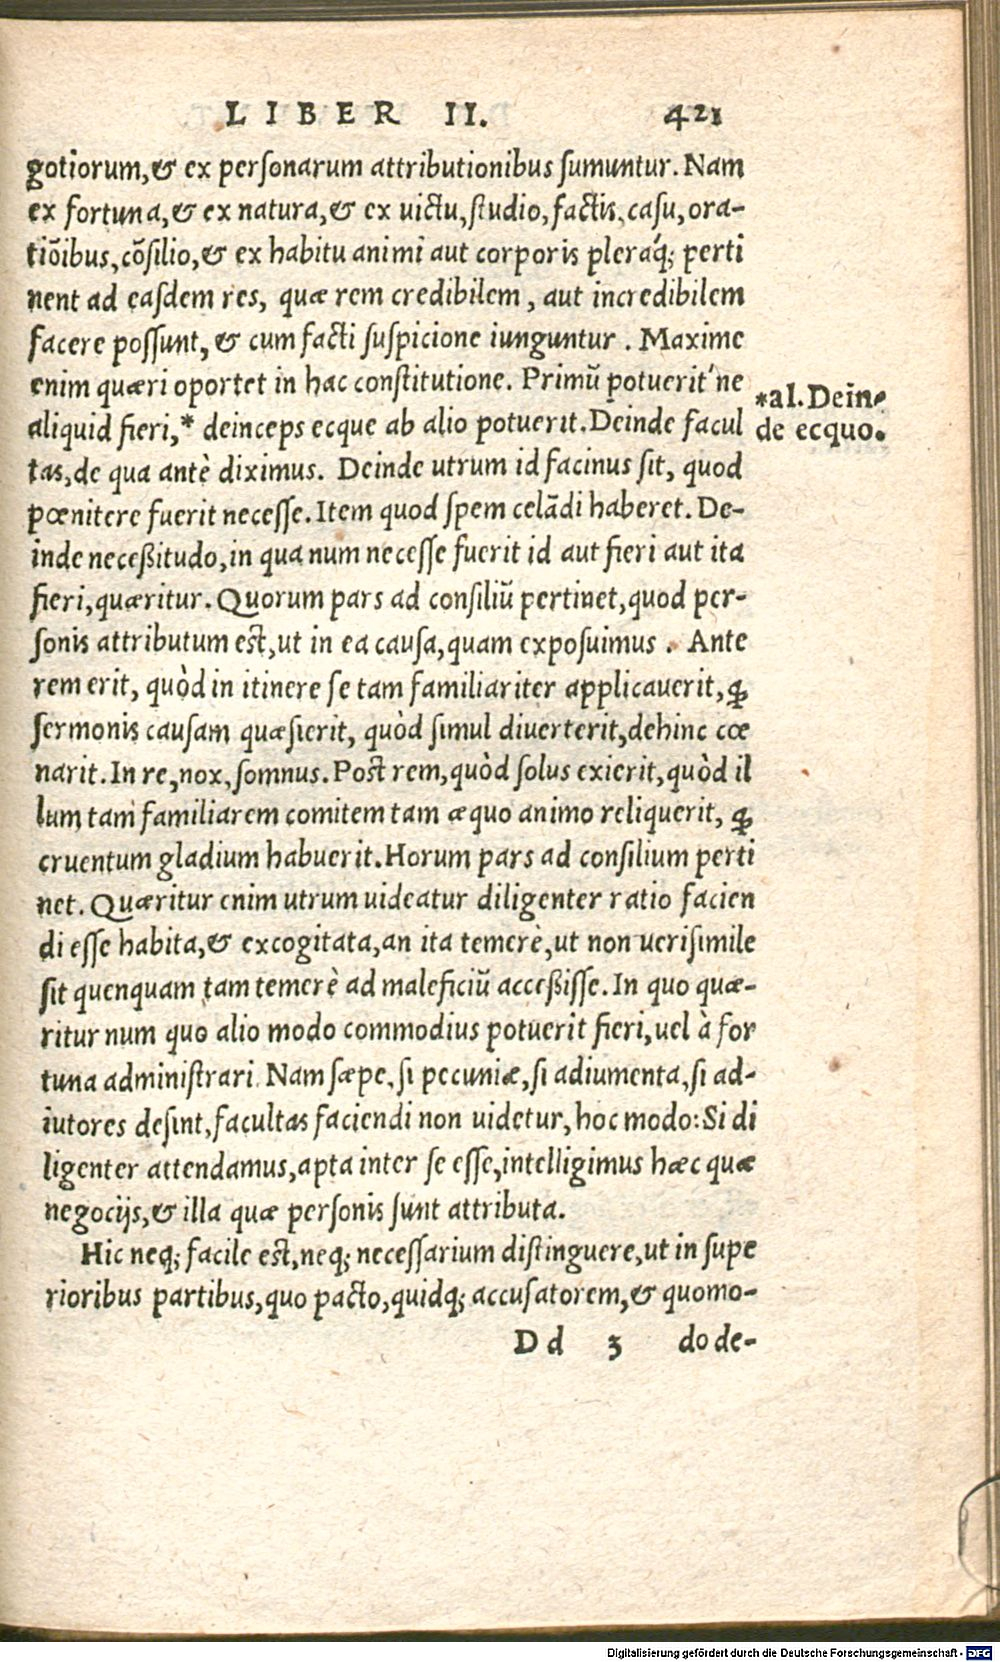 LIBER II. 421
gotiorum,& ex personarum attributionibus sumuntur. Nam
ex fortuna,& ex natura,& ex uictu,studio,factis,casu,ora-
tiõibus,cõsilio,& ex habitu animi aut corporis pleraq́; perti
nent ad easdem res, quæ rem credibilem, aut incredibilem
facere possunt, & cum facti suspicione iunguntur. Maxime
enim quæri oportet in hac constitutione. Primũ potuerit'ne
aliquid fieri,* deinceps ecque ab alio potuerit.Deinde facul
*al.Dein-
de ecquo.
tas,de qua antè diximus. Deinde utrum id facinus sit, quod
pœnitere fuerit necesse.Item quod spem celãdi haberet.De-
inde neceßitudo,in qua num necesse fuerit id aut fieri aut ita
fieri,quæritur.Quorum pars ad consiliũ pertinet,quod per-
sonis attributum est,ut in ea causa,quam exposuimus. Ante
rem erit, quòd in itinere se tam familiariter applicauerit, ꝙ
sermonis causam quæsierit, quòd simul diuerterit,dehinc cœ
narit.In re,nox,somnus.Post rem,quòd solus exierit,quòd il
lum tam familiarem comitem tam æquo animo reliquerit, ꝙ
cruentum gladium habuerit.Horum pars ad consilium perti
net.Quæritur enim utrum uideatur diligenter ratio facien
di esse habita,& excogitata,an ita temerè,ut non uerisimile
sit quenquam tam temerè ad maleficiũ acceßisse.In quo quæ-
ritur num quo alio modo commodius potuerit fieri,uel à for
tuna administrari. Nam sæpe,si pecuniæ,si adiumenta,si ad-
iutores desint,facultas faciendi non uidetur,hoc modo:Si di
ligenter attendamus,apta inter se esse,intelligimus hæc quæ
negocijs,& illa quæ personis sunt attributa.
Hic neq; facile est,neq; necessarium distinguere,ut in supe
rioribus partibus,quo pacto,quidq; accusatorem,& quomo-
Dd 3 do de-
Digitalisierung gefördert durch die Deutsche Forschungsgemeinschaft - DFG